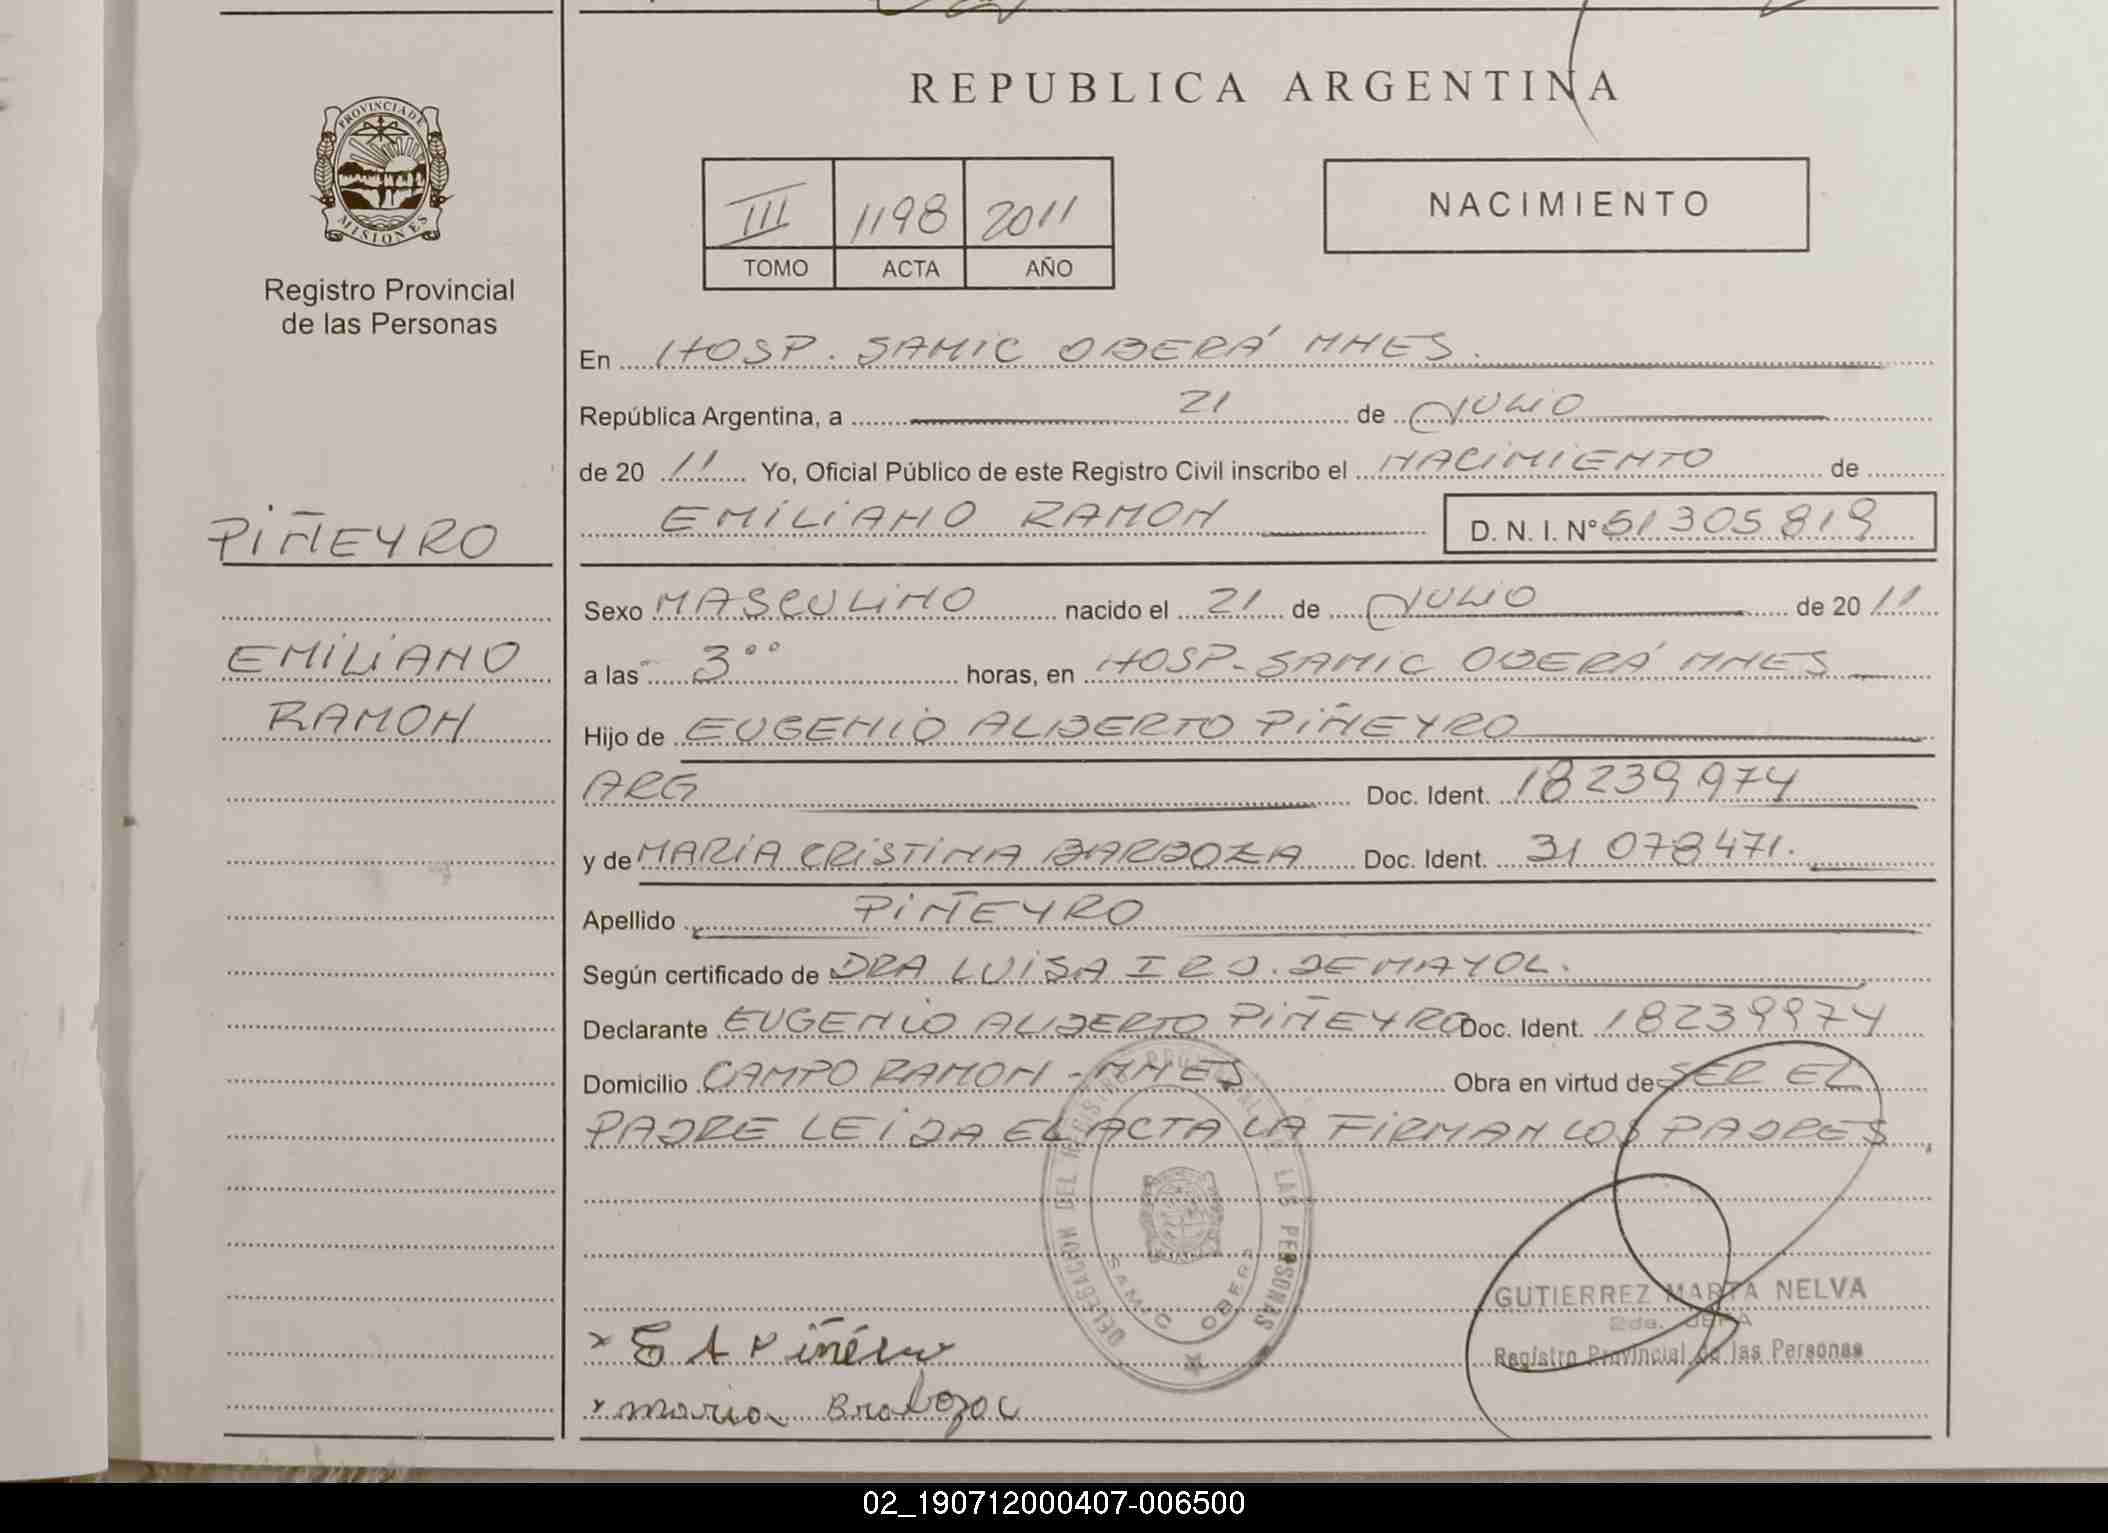 REPUBLICA ARGENTINA
PROVINCIA DE
MISIONES
Registro Provincial
de las Personas
III 1198 2011
TOMO ACTA AÑO
NACIMIENTO
En HOSP. SAMIC OBERÁ MNES.
República Argentina, a 21 de JULIO
de 20 11 Yo, Oficial Público de este Registro Civil inscribo el NACIMIENTO de
EMILIANO RAMON D. N. I. Nº 51 305 819
PIÑEYRO
EMILIANO
RAMON
Sexo MASCULINO nacido el 21 de JULIO de 20 11
a las 3°° horas, en HOSP-SAMIC OBERÁ MNES
Hijo de EUGENIO ALBERTO PIÑEYRO
ARG Doc. Ident. 18 239 974
y de MARIA CRISTINA BARBOZA Doc. Ident. 31 078 471.
Apellido PIÑEYRO
Según certificado de DRA LUISA I R J. DE MAYOL.
Declarante EUGENIO ALBERTO PIÑEYRO Doc. Ident. 18239974
Domicilio CAMPO RAMON - MNES Obra en virtud de SER EL
PADRE LEIDA EL ACTA LA FIRMAN LOS PADRES
DELEGACION DEL REGISTRO PROVINCIAL DE LAS PERSONAS
SAMIC OBERA
GUTIERREZ MARTA NELVA
2da. JEFA
Registro Provincial de las Personas
x E A Piñero
x maria Brabozac
02_190712000407-006500